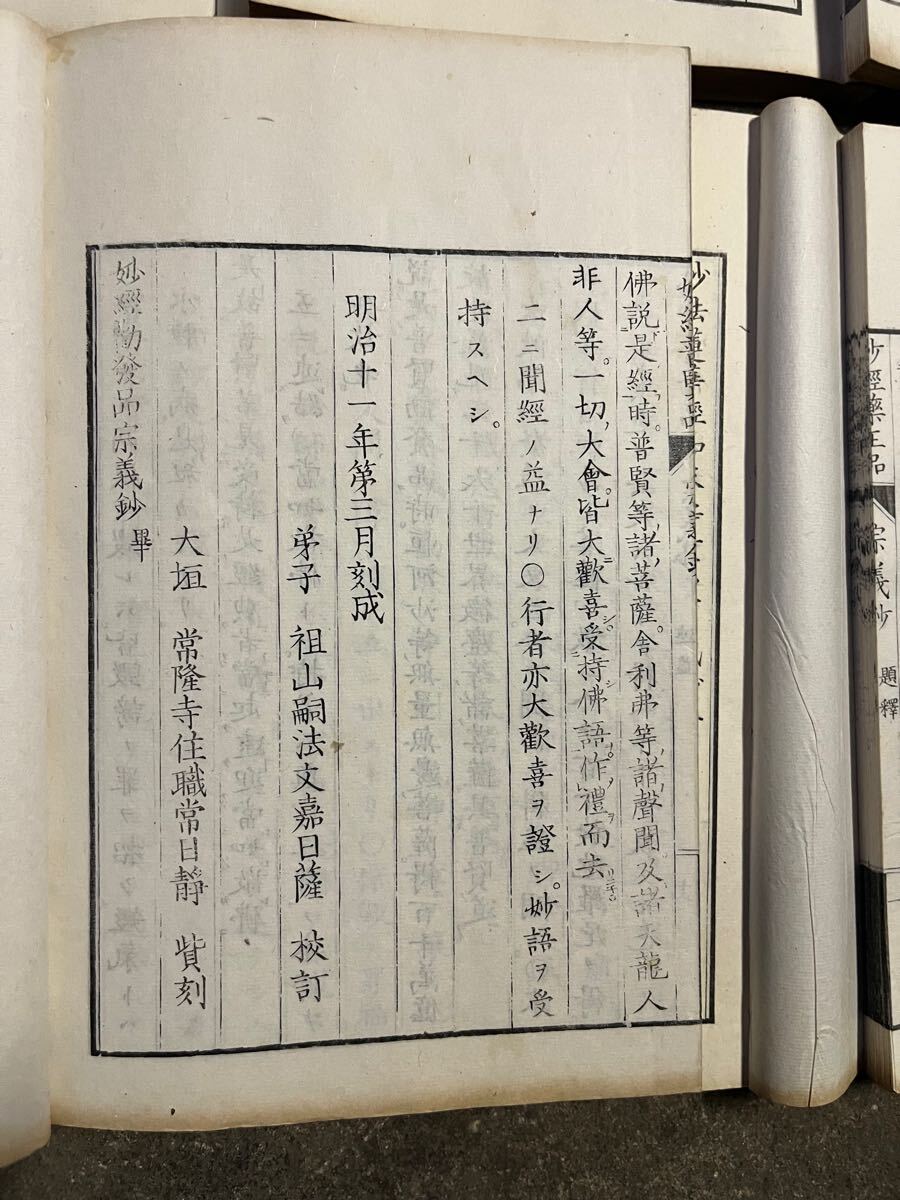 佛説是經時普賢等諸菩薩。舍利弗等諸聲聞及諸天龍人
非人等。一切大會皆大歡喜受持佛語作禮而去
二ニ聞經ノ益ナリ〇行者亦大歡喜ヲ證シ。妙語ヲ受
持スヘシ。
明治十一年第三月刻成
弟子 祖山嗣法文嘉日薩 校訂
大垣 常隆寺住職常日靜 貲刻
妙經勸發品宗義鈔 畢
妙經藥王品
宗義鈔
題釋